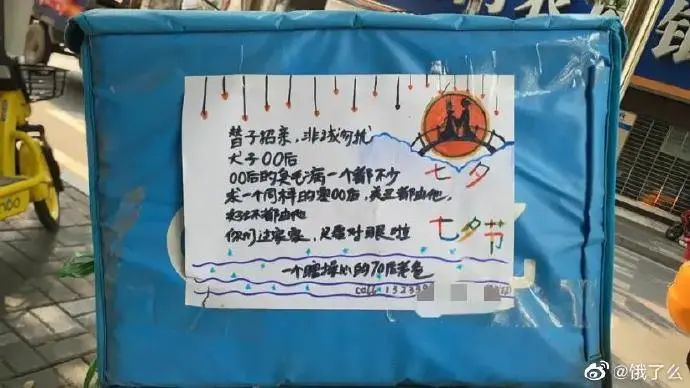 替子招亲，非诚勿扰
犬子00后
00后的臭毛病一个都不少
求一个同样的零00后，关卫都由他，
好坏都由他
你们过家家，只需对眼啦
一个瞎操心的70后老爸
call 132339
七夕
七夕节
@饿了么